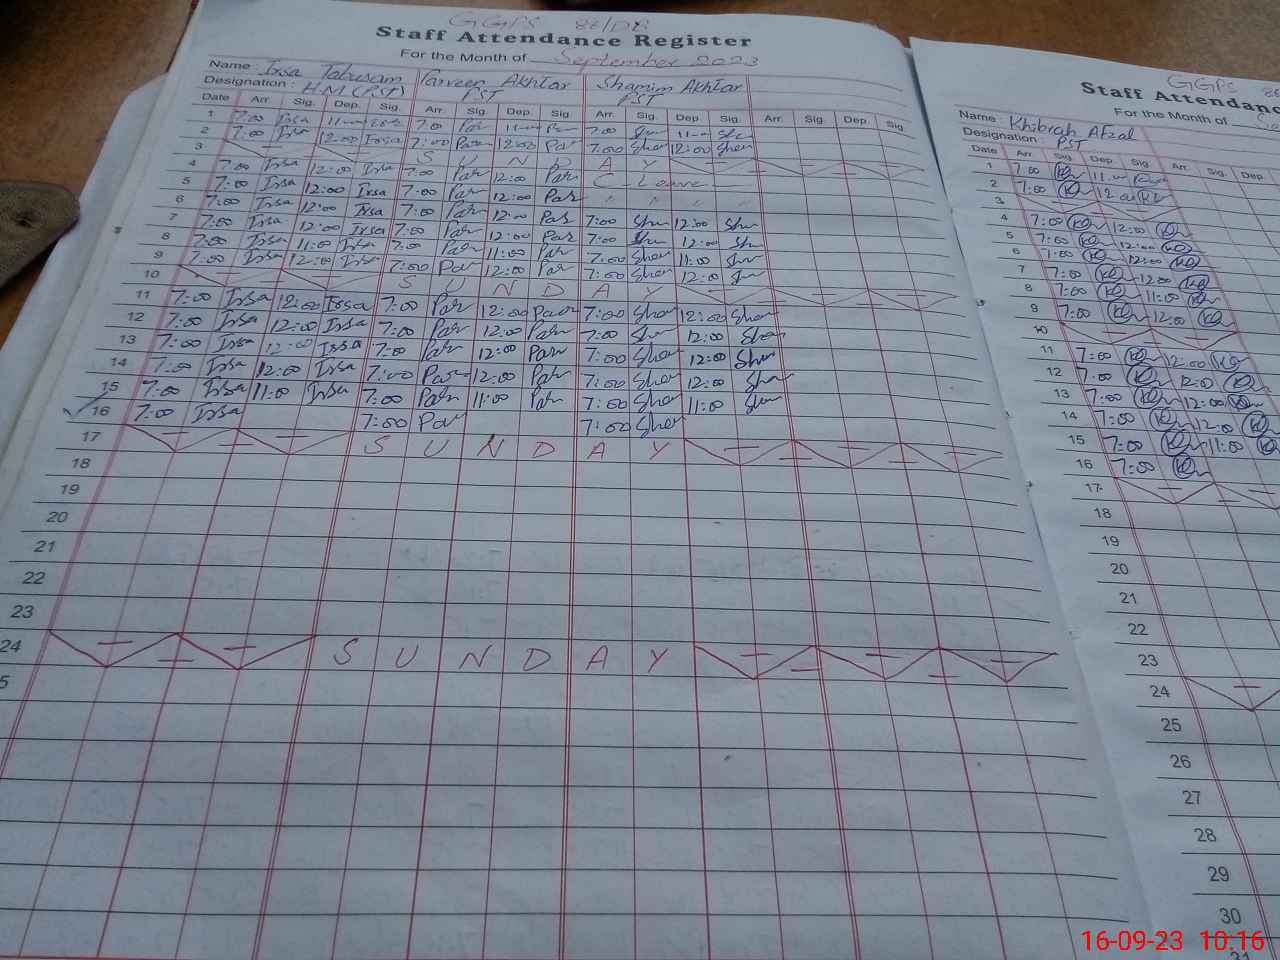 GGPS 86/DB
Staff Attendance Register
For the Month of September 2023
Name : Irsa Tabusam Parveen Akhtar Shamim Akhtar
Designation : H.M (PST) PST PST
Date Arr. Sig. Dep. Sig. Arr. Sig. Dep. Sig. Arr. Sig. Dep. Sig. Arr. Sig. Dep. Sig.
1 7:00 Irsa 11:00 Irsa 7:00 Par 11:00 Par 7:00 Sha 11:00 Sha
2 7:00 Irsa 12:00 Irsa 7:00 Par 12:00 Par 7:00 Sha 12:00 Sha
3 S U N D A Y
4 7:00 Irsa 12:00 Irsa 7:00 Par 12:00 Par C Leave
5 7:00 Irsa 12:00 Irsa 7:00 Par 12:00 Par
6 7:00 Irsa 12:00 Irsa 7:00 Par 12:00 Par 7:00 Sha 12:00 Sha
7 7:00 Irsa 12:00 Irsa 7:00 Par 12:00 Par 7:00 Sha 12:00 Sha
8 7:00 Irsa 11:00 Irsa 7:00 Par 11:00 Par 7:00 Sha 11:00 Sha
9 7:00 Irsa 12:00 Irsa 7:00 Par 12:00 Par 7:00 Sha 12:00 Sha
10 S U N D A Y
11 7:00 Irsa 12:00 Irsa 7:00 Par 12:00 Par 7:00 Sha 12:00 Sha
12 7:00 Irsa 12:00 Irsa 7:00 Par 12:00 Par 7:00 Sha 12:00 Sha
13 7:00 Irsa 12:00 Irsa 7:00 Par 12:00 Par 7:00 Sha 12:00 Sha
14 7:00 Irsa 12:00 Irsa 7:00 Par 12:00 Par 7:00 Sha 12:00 Sha
15 7:00 Irsa 11:00 Irsa 7:00 Par 11:00 Par 7:00 Sha 11:00 Sha
16 7:00 Irsa 7:00 Par 7:00 Sha
17 S U N D A Y
18
19
20
21
22
23
24 S U N D A Y
5
GGPS 86
Staff Attendanc
For the Month of
Name : Khibrah Afzal
Designation : PST
Date Arr. Sig. Dep. Sig. Arr. Sig. Dep.
1 7:00 11:00
2 7:00 12:00
3
4 7:00 12:00
5 7:00 12:00
6 7:00 12:00
7 7:00 12:00
8 7:00 11:00
9 7:00 12:00
10
11 7:00 12:00
12 7:00 12:0
13 7:00 12:00
14 7:00 12:0
15 7:00 11:00
16 7:00
17
18
19
20
21
22
23
24
25
26
27
28
29
30
31
16-09-23 10:16